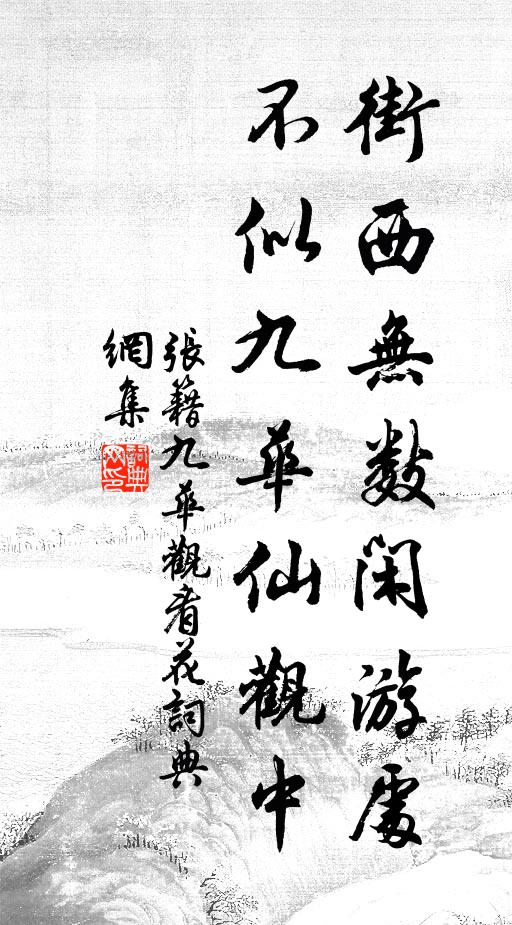 街西無數閑游處
不似九華仙觀中
張籍九華觀看花詞典
網集
詞典
网印